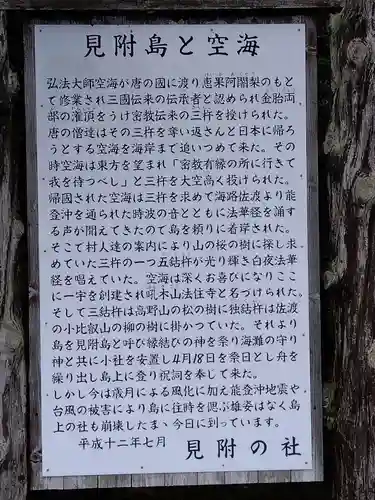 見附島と空海
弘法大師空海が唐の國に渡り恵果阿闍梨のもと
て修業され三國伝来の伝承者と認められ金胎両
部の灌頂をうけ密教伝来の三杵を授けられた。
唐の僧達はその三杵を奪い返さんと日本に帰ろ
うとする空海を海岸まで追いつめて来た。その
時空海は東方を望まれ「密教有縁の所に行きて
我を待つべし」と三杵を大空高く投げられた。
帰國された空海は三杵を求めて海路佐渡より能
登沖を通られた時波の音とともに法華経を誦す
る声が聞えてきたので島を頼りに着岸された。
そこで村人達の案内により山の桜の樹に探し求
めていた三杵の一つ五鈷杵が光り輝き白夜法華
経を唱えていた。空海は深くお喜びになりここ
に一宇を創建され吼木山法住寺と名づけられた。
そして三鈷杵は高野山の松の樹に独鈷杵は佐渡
の小比叡山の柳の樹に掛かつていた。それより
島を見附島と呼び縁結びの神を祭り海灘の守り
神と共に小社を安置し4月18日を祭日とし舟を
繰り出し島上に登り祝詞を奉じて来た。
しかし今は歳月による風化に加え能登沖地震や
台風の被害により島に往時を偲ぶ雄姿はなく島
上の社も崩壊したまゝ今日に到っています。
平成十二年七月 見附の社